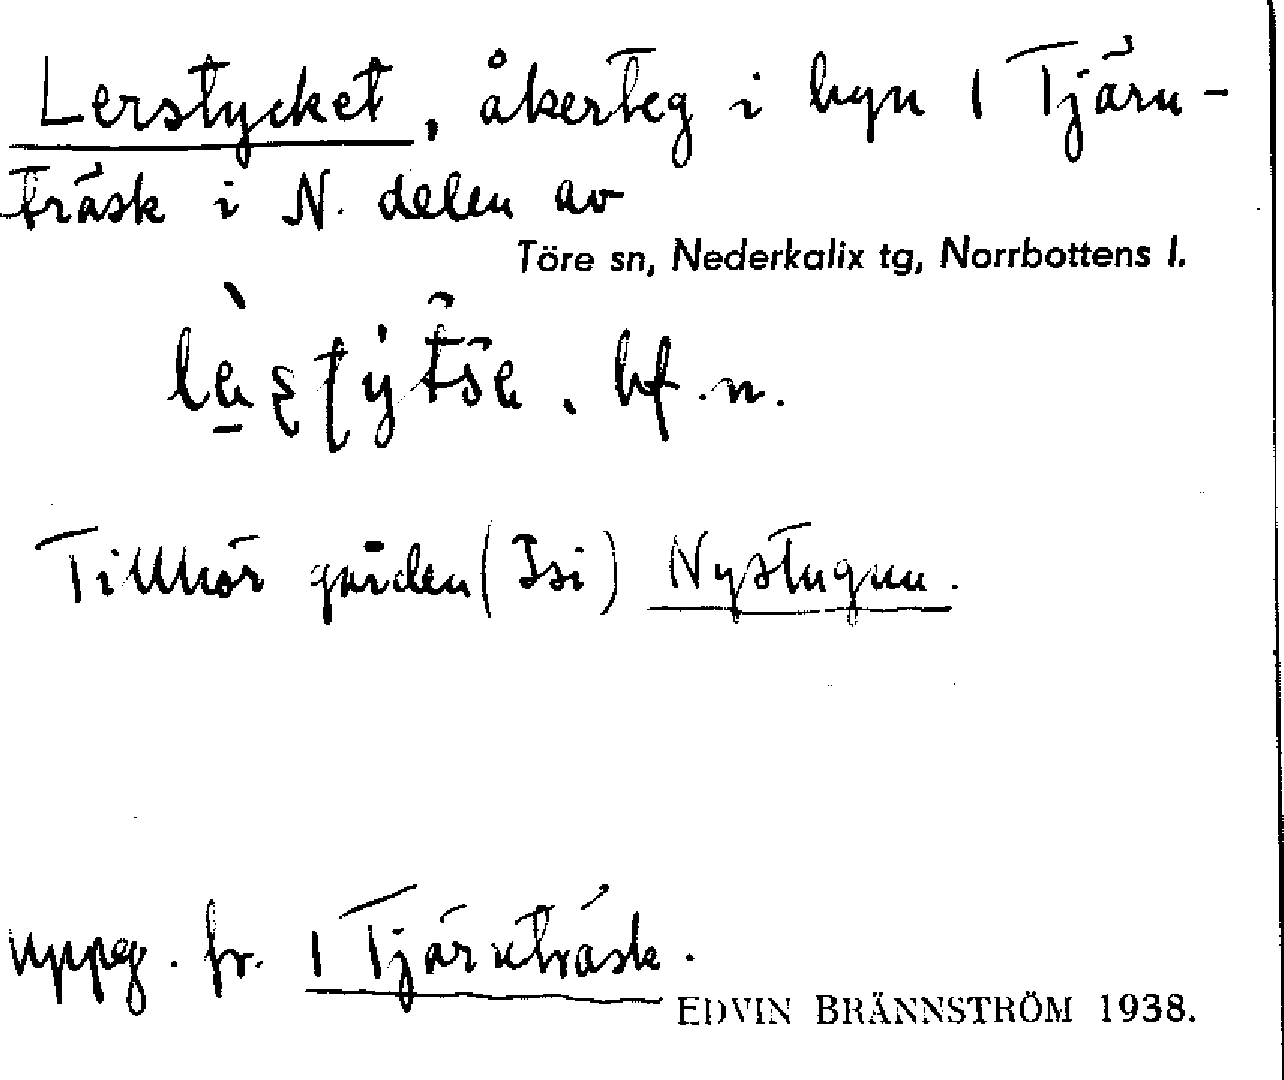 Lerstycket, åkerteg i byn 1 Tjärn-
träsk i N. delen av
Töre sn, Nederkalix tg, Norrbottens l.
bf.n.
Tillhör gården (Isi) Nystugun.
uppg. fr. 1 Tjärnträsk.
EDVIN BRÄNNSTRÖM 1938.